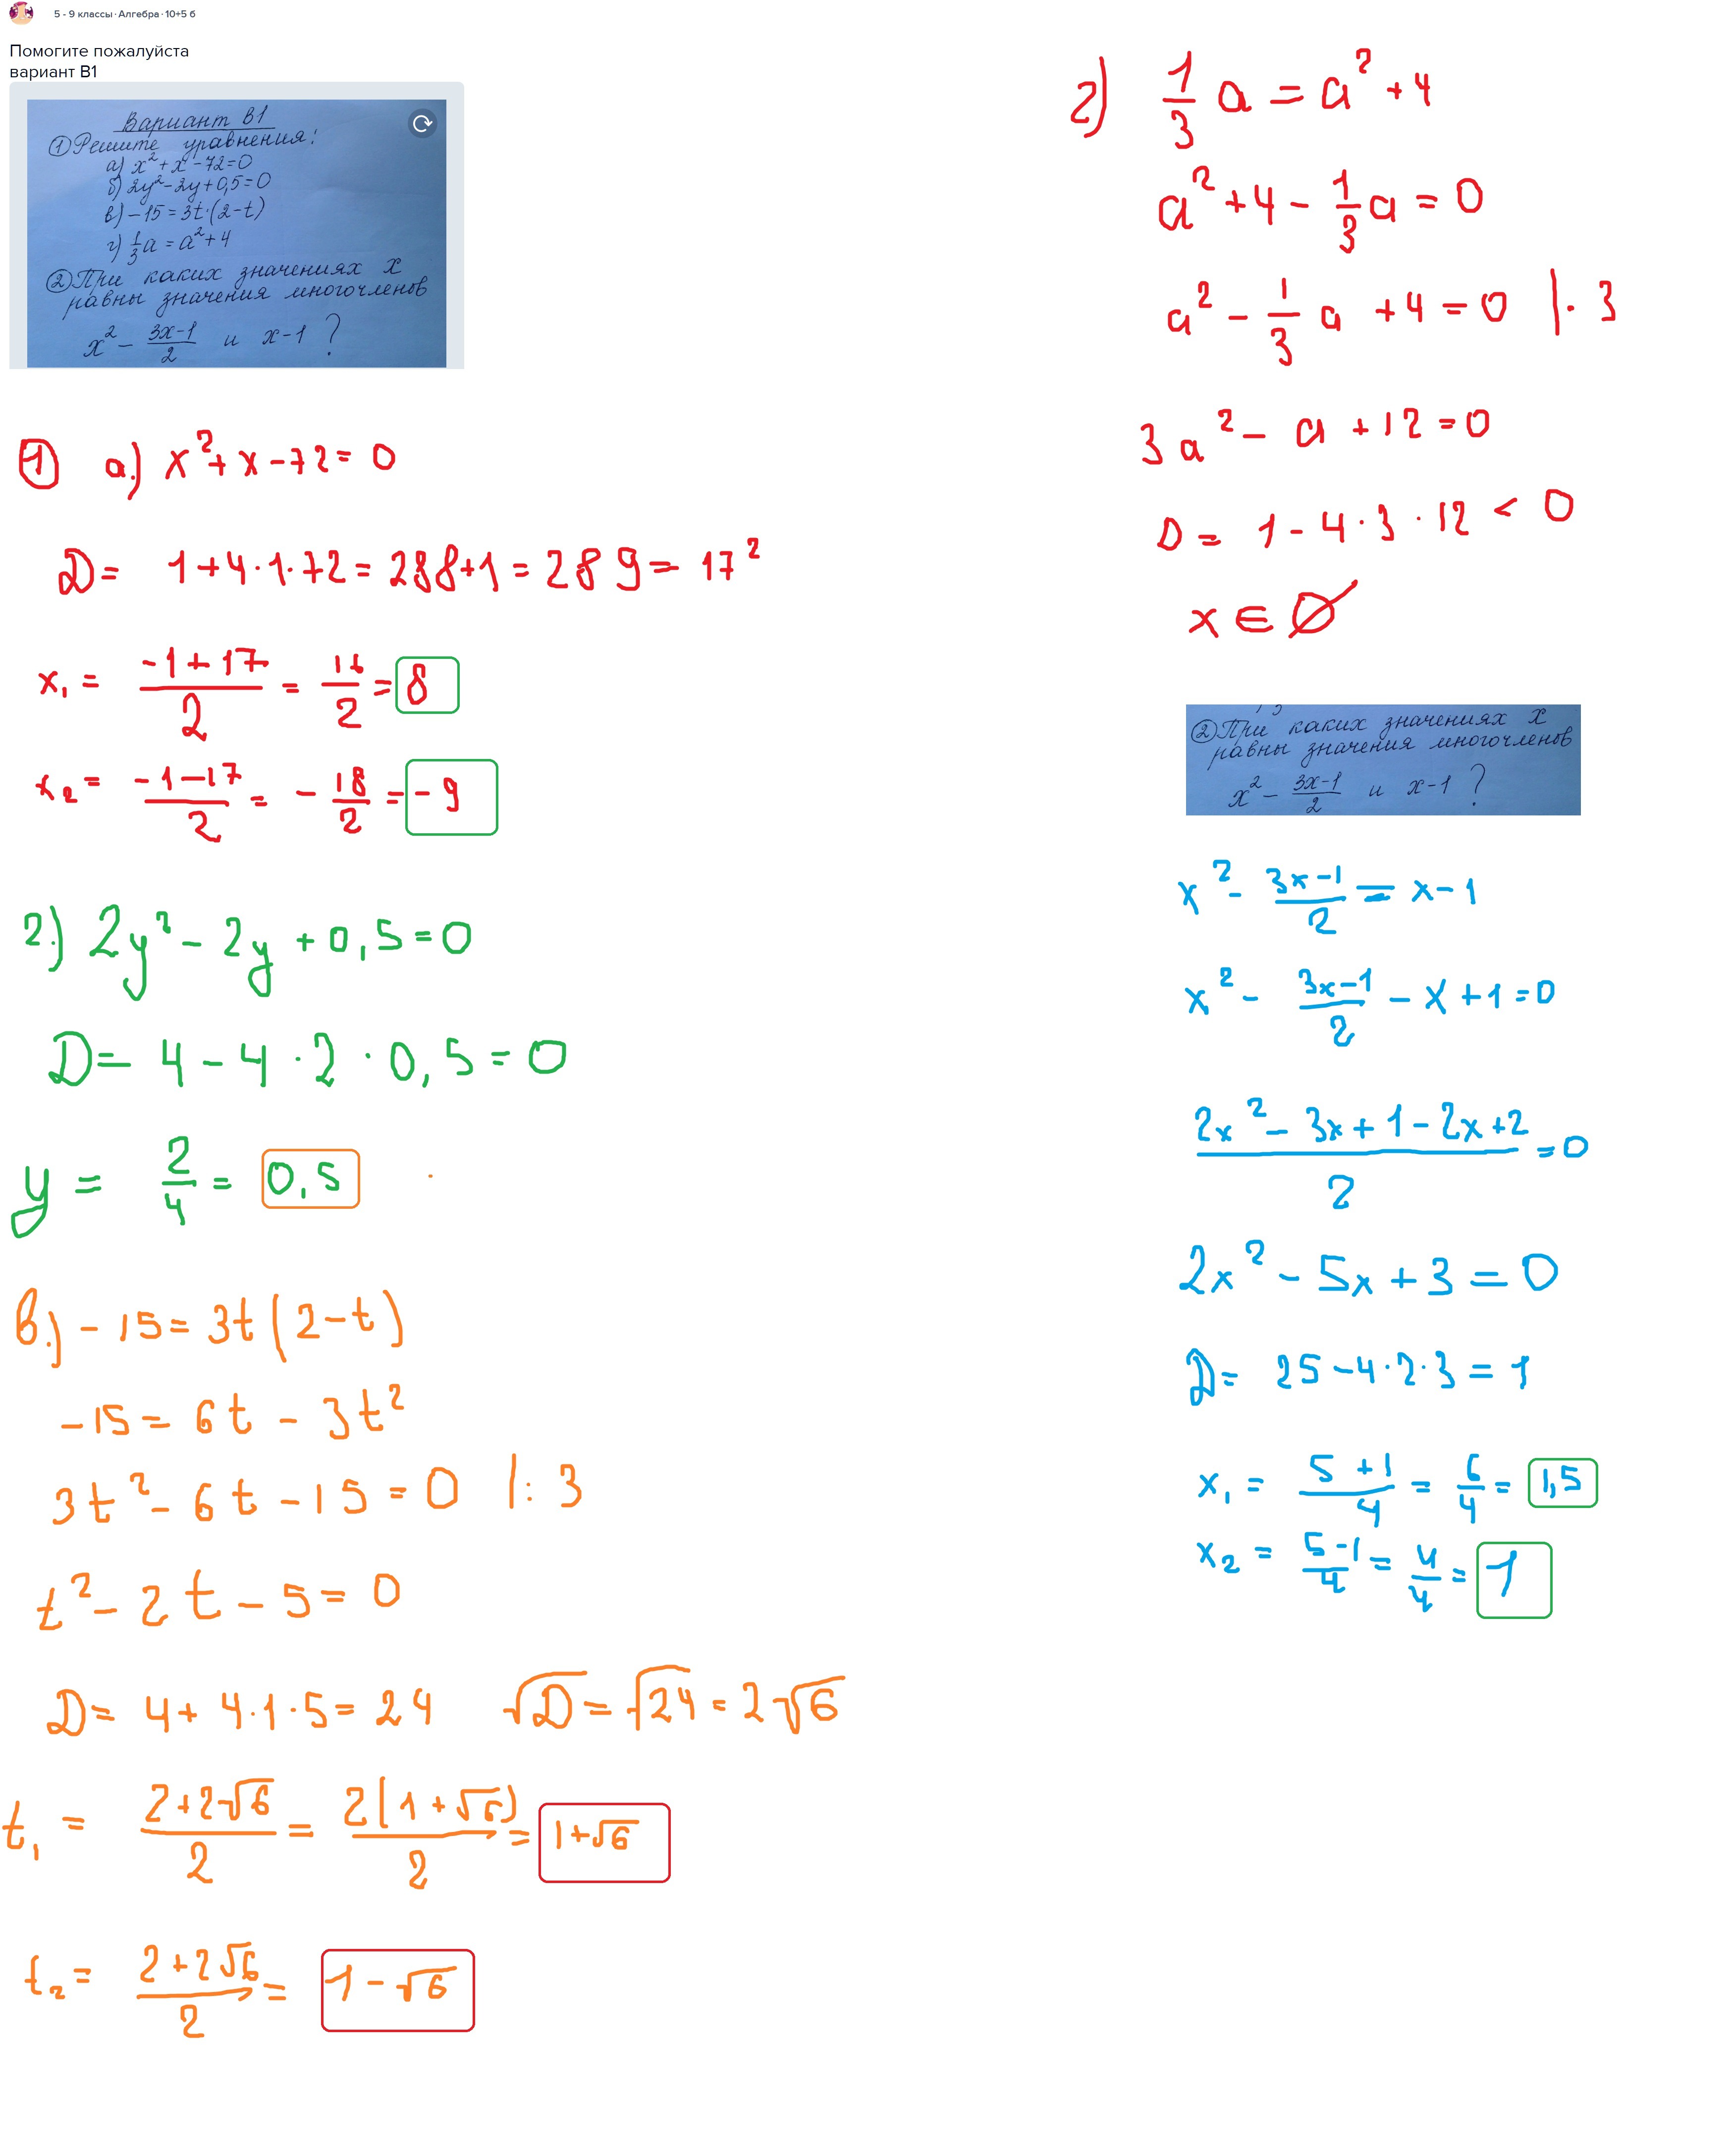 5 - 9 классы · Алгебра · 10+5 б
Помогите пожалуйста
вариант В1
Вариант В1
① Решите уравнения:
а) x² + x - 72 = 0
б) 2y² - 2y + 0,5 = 0
в) -15 = 3t·(2-t)
г) 1/3 a = a² + 4
② При каких значениях x
равны значения многочленов
x² - (3x-1)/2 и x-1 ?
① а.) x² + x - 72 = 0
D = 1 + 4·1·72 = 288+1 = 289 = 17²
x₁ = (-1+17)/2 = 16/2 = 8
x₂ = (-1-17)/2 = - 18/2 = -9
2.) 2y² - 2y + 0,5 = 0
D = 4 - 4·2·0,5 = 0
y = 2/4 = 0,5
в.) -15 = 3t(2-t)
-15 = 6t - 3t²
3t² - 6t - 15 = 0 |: 3
t² - 2t - 5 = 0
D = 4 + 4·1·5 = 24 √D = √24 = 2√6
t₁ = (2+2√6)/2 = 2(1+√6)/2 = 1+√6
t₂ = (2+2√6)/2 = 1-√6
г) 1/3 a = a² + 4
a² + 4 - 1/3 a = 0
a² - 1/3 a + 4 = 0 |· 3
3a² - a + 12 = 0
D = 1 - 4·3·12 < 0
x ∈ ∅
② При каких значениях x
равны значения многочленов
x² - (3x-1)/2 и x-1 ?
x² - (3x-1)/2 = x-1
x² - (3x-1)/2 - x + 1 = 0
(2x² - 3x + 1 - 2x + 2)/2 = 0
2x² - 5x + 3 = 0
D = 25 - 4·2·3 = 1
x₁ = (5+1)/4 = 6/4 = 1,5
x₂ = (5-1)/4 = 4/4 = 1